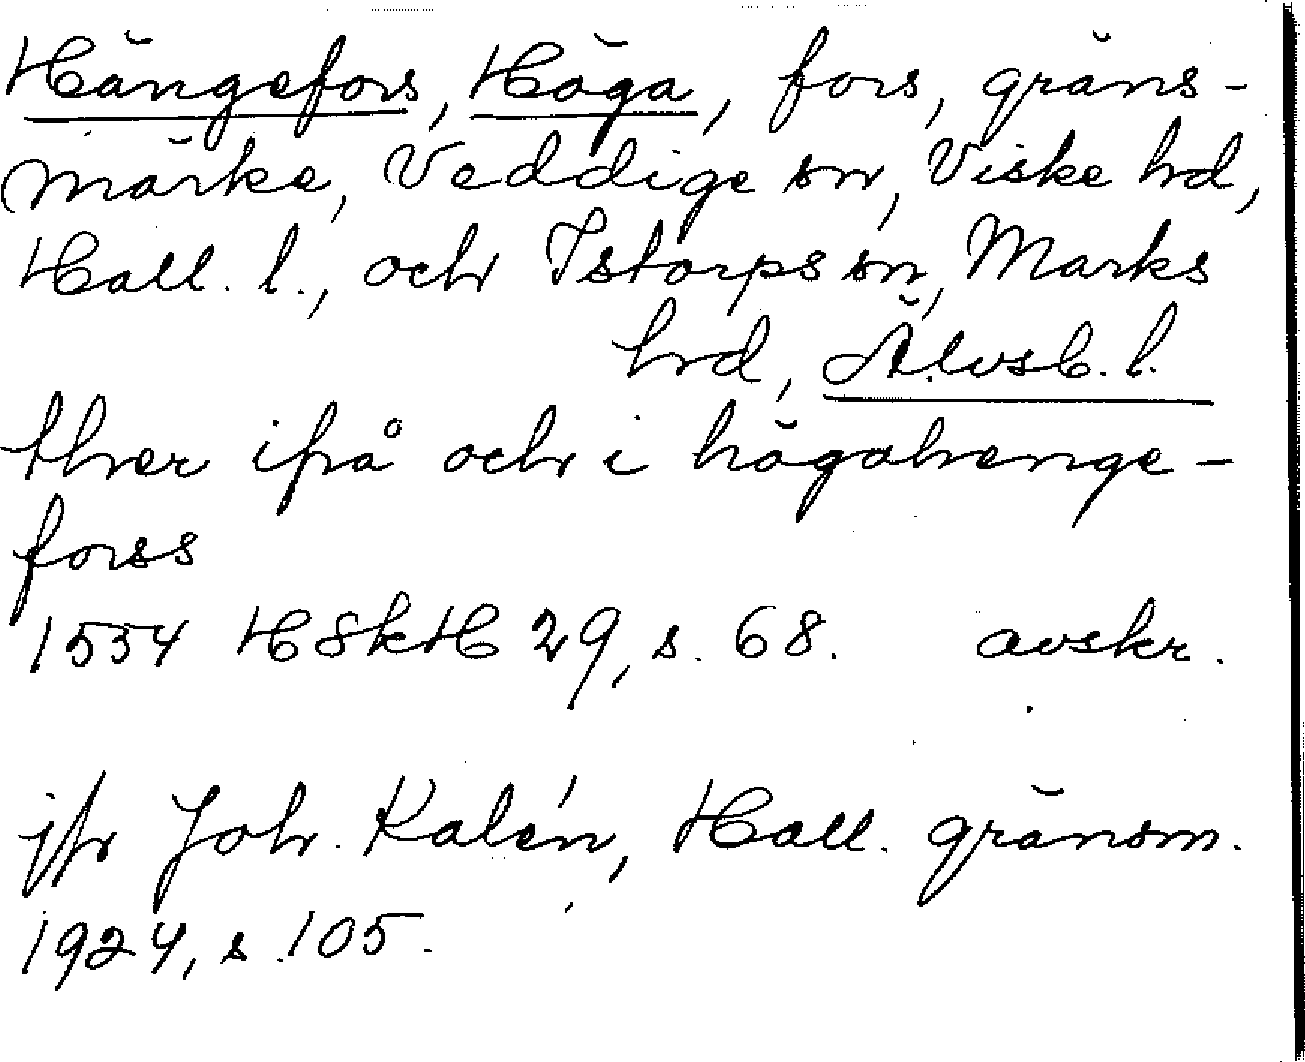 Hängefors, Höga, fors, gräns-
märke, Veddige sn, Viske hd,
Hall. l., och Istorps sn, Marks
hd, Älvsb. l.
ther ifrå och i högahenge-
forss
1554 HSkH 29, s. 68. avskr.
jfr Joh. Kalén, Hall. gränsm.
1924, s. 105.